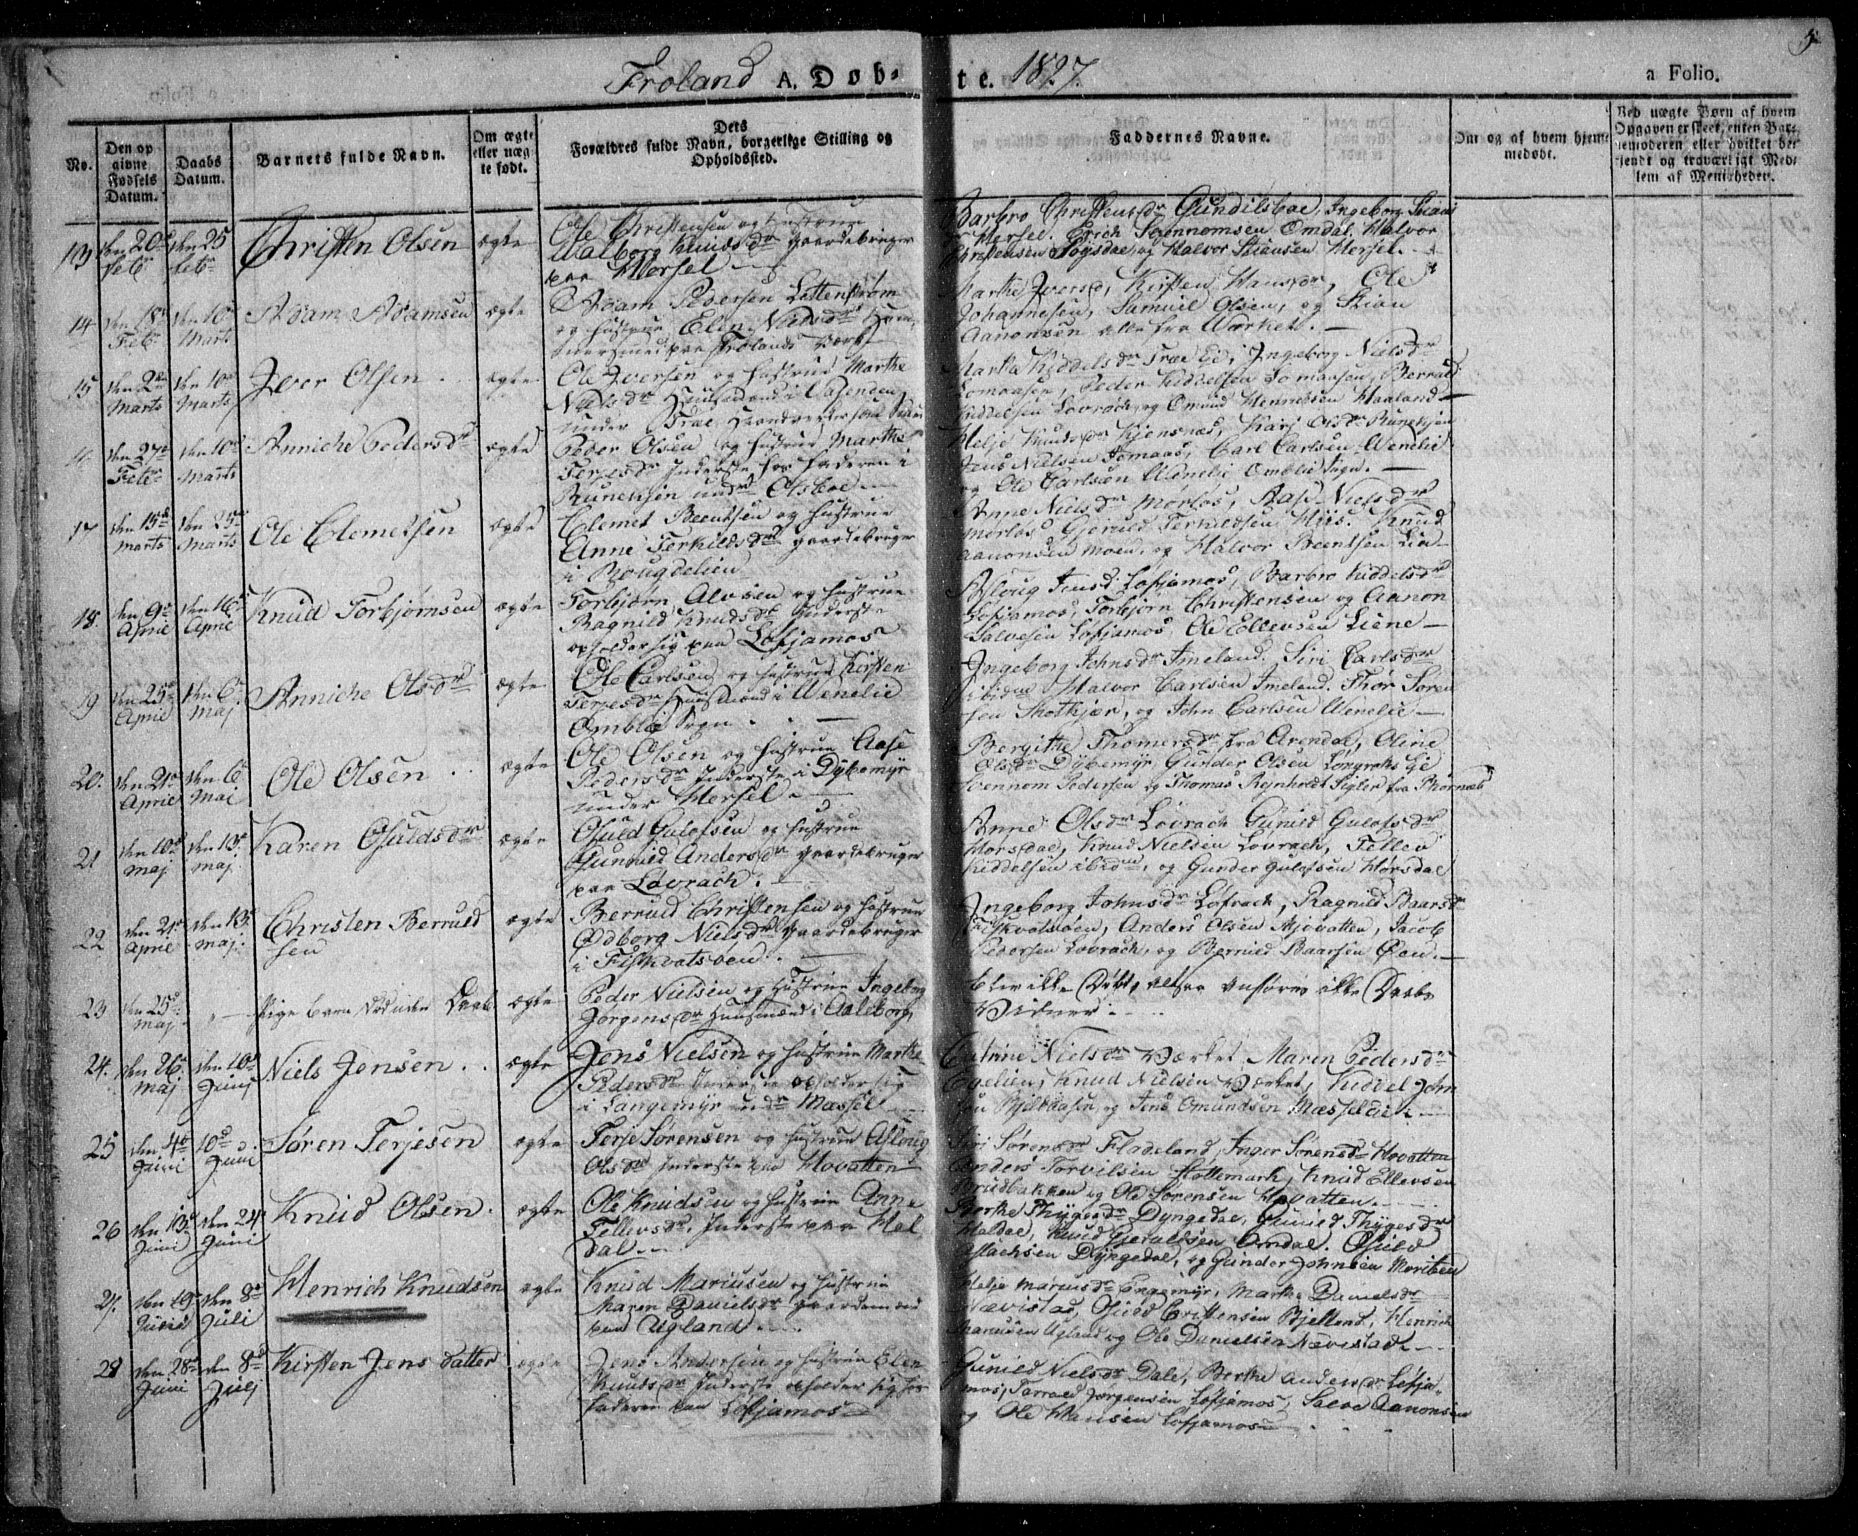 Froland A. Døb- te. 1827. a Folio. 5
No.
Den op
givne
Fødsels
Datum.
Daabs
Datum.
Barnets fulde Navn.
Om ægte
eller uæg
te født.
Dets
Forældres fulde Navn, borgerlige Stilling og
Opholdssted.
Faddernes Navne.
Om og af hvem hjemme
medøbt.
Ved uægte Børn af hvem
Opgaven er skeet, enten Bar-
nemoderen, eller hvilket be-
kjendt og troværdigt Med-
lem af Menigheden.
13 den 20de Febr den 25 Febr Christen Olsen ægte
Ole Christensen og Hustrue
Walborg Knudsdr Gaardebruger
paa Mersel
Barbro Christensdr Gundilsboe, Ingeborg
Mersel. Erich Omdal, Halvor
Christensen og Halvor Mersel.
14 den 18de Febr den 10de Marts Adam Adamsen ægte
Adam Pedersen Lottenstrøm
og Hustrue Elen Nielsdr
paa Frolands Værk
Marthe Iversd, Kirsten Hansdr, Ole
Johannesen, Samuel Olsen, og Stian
Aanonsen alle fra Værket.
15 den 2den Marts den 10de Marts Iver Olsen ægte
Ole Iversen og Hustrue Marthe
Nielsdr Huusmand i Aasenden
under
Marthe Kiddelsdr Træ Ei, Ingeborg Nielsdr
Tomaasen, Peder Kiddelsen Tomaasen, Berruld
Kiddelsen Lovrach, og Omund Henrichsen Haaland
den 27de Febr den 10de Marts Anniche Pedersdr ægte
Peder Olsen og Hustrue Marthe
Terjesdr Inderste hos Faderen i
Runekjen under Olsboe
Helje Knudsdr Kjensnæs, Kari Olsdr Runekjen
Jens Nielsen Tomaas, Carl Carlsen Wenelie
og Ole Carlsen Wenelie Omblie Sogn.
17 den 15de Marts den 25de Marts Ole Clemetsen ægte
Clemet Beentsen og Hustrue
Anne Terkildsdr Gaardebruger
i Bougdelien
Anne Nielsdr Morlos, Aase Nielsdr
Morlos Gjeruld Terkildsen Hiis. Knud
Aanonsen Moen, og Halvor Beentsen Lien
18. den 9de April den 16de April Knud Torbjørnsen ægte
Torbjørn Alvsen og Hustrue
Ragnild Knudsdr Inderste
opholder sig paa Løfsjamos
Asloug Jensd: Løfsjamos, Barbro Kiddelsdr
Løfsjamos, Torbjørn Christensen og Aanon
Salvesen Løfsjamos, Ole Ellevsen Liene
19 den 25de April den 6te Maj Anniche Olsdr ægte
Ole Carlsen og Hustrue Kirsten
Terjesdr Huusmand i Wenelie
Omblie Sogn.
Ingeborg Johnsdr Imeland, Siri Carlsdr
ibidm Halvor Carlsen Imeland. Thor Søren
sen Skotkjær, og John Carlsen Wenelie
20. den 21de April den 6te Maj Ole Olsen ægte
Ole Olsen og Hustrue Aase
Pedersdr Inderste i Dybemyr
under Mersel.
Bergithe Thomersdr fra Arendal, Oline
Olsdr Dybemyr, Gunder Olsen Longrots Eje
Svennom Pedersen og Thomas Rejnholdt Sigler fra Thornæs
21 den 10de Maj den 13de Maj. Karen Osuldsdr ægte
Osuld Gulofsen og Hustrue
Gunnild Andersdr Gaardebruger
paa Lovrach.
Anne Olsdr Lovrach, Gunild Gulofsdr
Horsdal, Knud Nielsen Lovrach, Tellev
Kiddelsen ibidm, og Gunder Gulofsen Horsdal
22 den 21de April den 13de Maj: Christen Berruld
sen ægte
Berruld Christensen og Hustrue
Odborg Nielsdr Gaardebruger
i Fiskvatsoen.
Ingeborg Johnsdr Lofrach, Ragnild Baarsdr
Fiskvatsøen, Anders Olsen Mjøvatten, Jacob
Pedersen Lovrach, og Berruld Baarsen Øen.
23 den 25de Maj " Pigebarn død uden Daab ægte
Peder Nielsen og Hustrue Ingeborg
Jørgensdr Huusmand i Aaleborg
blev ikke Døbt, altsaa anføres ikke Daabs
Vidner.
24. den 26de Maj den 10de Junj Niels Jensen ægte
Jens Nielsen og Hustrue Marthe
Pedersdr Inderste opholder sig
i Langemyr undr Mæssel
Catrine Nielsdr Værket, Maren Pedersdr
Evelien, Knud Nielsen Værket, Kiddel John
sen og Jens Omundsen Mæsseleie.
25 den 4de Juni 10de Juni Søren Terjesen ægte
Terje Sørensen og Hustrue Asloug
Olsdr Inderste paa Hovatten
Siri Sørensdr Fladeland, Inger Sørensdr Hovatten
Anders Torvilsen Hottemark, Knud Ellevsen
Brudbakken og Ole Sørensen Hovatten.
26 den 13de Juni den 24de Juni Knud Olsen ægte
Ole Knudsen og Hustrue Anne
Tellevsdr, Inderste paa Hal
dal
Berthe Thygesdr Dyngedal, Gunild Thygesdr
Haldal, Knud Gjeruldsen Omdal. Osuld
Aslachsen Dyngedal, og Gunder Johnsen Moritsen
27. den 19de Juni den 8de Juli Henrich Knudsen ægte
Knud Mariusen og Hustrue
Maren Danielsdr Gaardmand
paa Ugland
Helje Mariusdr Engemyr, Marthe Danielsdr
Nævistad, Osuld Cristensen Bjelland, Henrich
Mariusen Ugland og Ole Danielsen Nævistad
28 den 28de Juni den 8de Julj Kirsten Jens datter ægte
Jens Andersen og Hustrue Elen
Knudsdr Inderste opholder sig hos
Faderen paa Løfsjamos
Gunild Nielsdr Dale, Berthe Andersdr Løfsja-
mos, Tarrald Jørgensen Løfsjamos, Salve Aanonsen
og Ole Hansen Løfsjamos